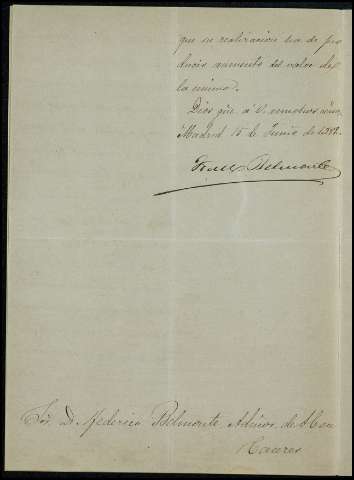 que su realizacion ha de pro
ducir aumento del valor de
la misma.
Dios gue á V. muchos años.
Madrid 15 de Junio de 1882.
Belmonte
Sor. D. Federico Belmonte Admor. de
Caceres